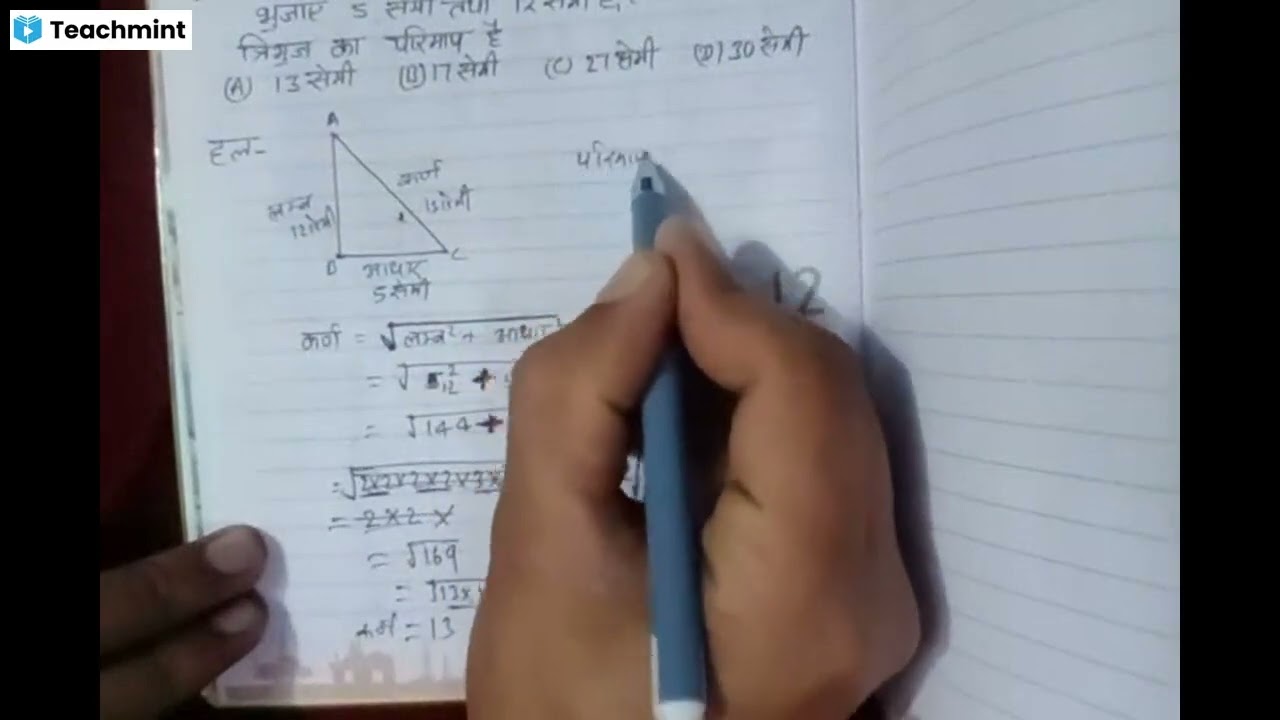 Teachmint
भुजाएं 5 सेमी तथा 12 सेमी है।
त्रिभुज का परिमाप है
(A) 13 सेमी (B) 17 सेमी (C) 27 सेमी (D) 30 सेमी
हल-
A
कर्ण
13 सेमी
लम्ब
12 सेमी
B
C
आधार
5 सेमी
परिमाप
12
कर्ण = √लम्ब² + आधार²
= √12² +
= √144 +
= √2×2×2×2×3×
= 2×2×
= √169
= √13×
कर्ण = 13